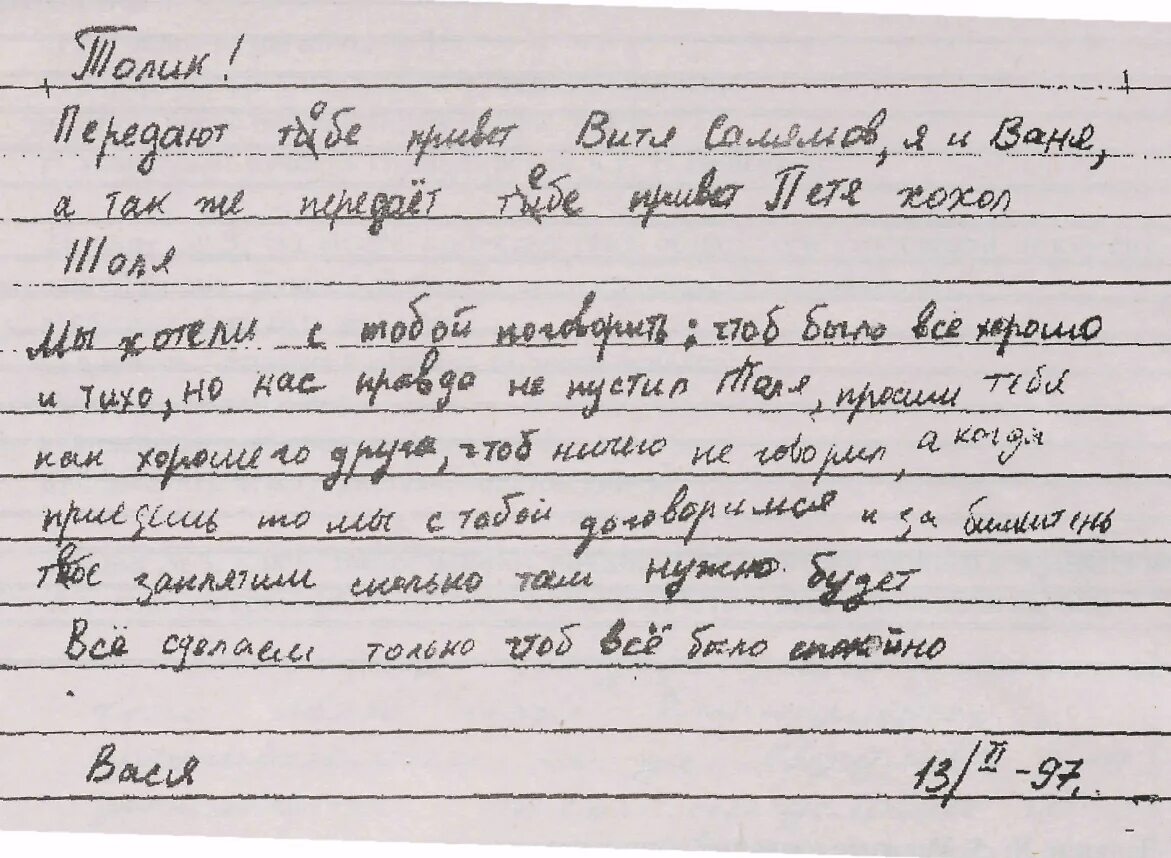 Толик!
Передают тебе привет Витя Салямов, я и Ваня,
а так же передаёт тебе привет Петя хохол
Толя
Мы хотели с тобой поговорить; чтоб было всё хорошо
и тихо, но нас правда не пустил Толя, просим тебя
как хорошего друга, чтоб ничего не говорил, а когда
приедешь то мы с тобой договоримся и за билютень
твое заплятим сколько там нужно будет
Всё сделаем только чтоб всё было спокойно
Вася 13/II-97.